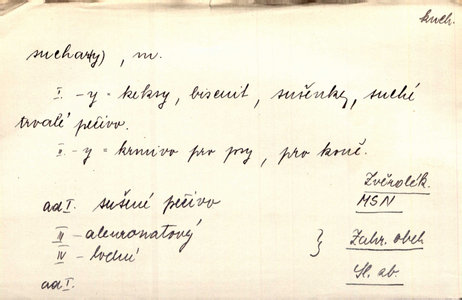 kuch.
suchar(y), m.
I. -y = keksy, biscuit, sušenky, suché
trvalé pečivo.
II. -y = krmivo pro psy, pro koně.
Zvěrolék.
ad I. sušené pečivo MSN
III - aleuronatový } Zahr. obch
IV - lodní
Sl. ob.
ad I.